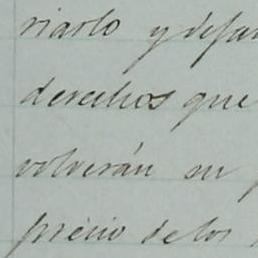 riarlo y defen
derechos que
volverán su p
precio de los